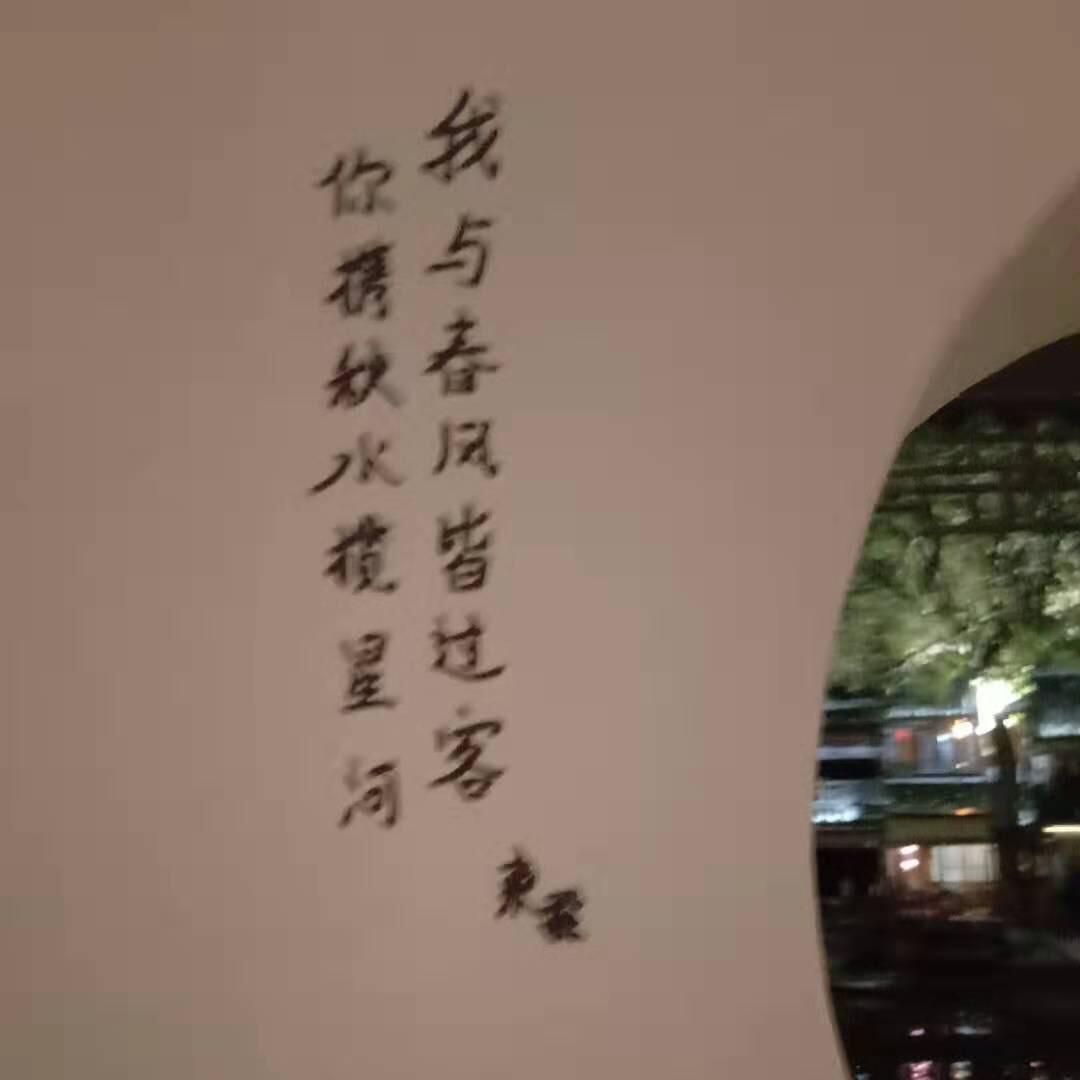 我与春风皆过客
你携秋水揽星河
東